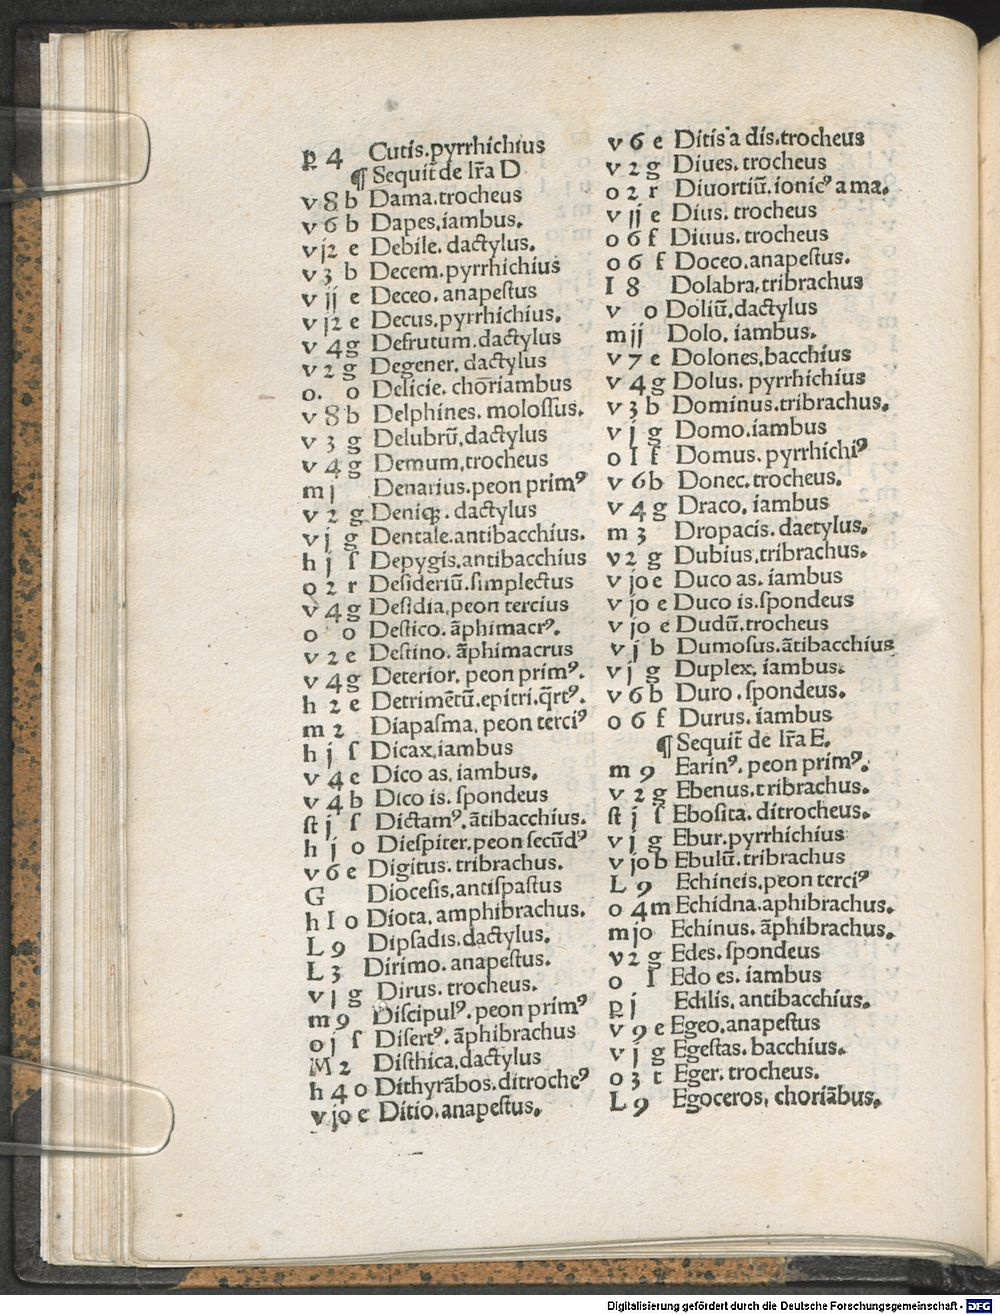 p 4 Cutis.pyrrhichius
¶ Sequit̃ de lr̃a D
v 8 b Dama.trocheus
v 6 b Dapes.iambus.
v j2 e Debile. dactylus.
v 3 b Decem.pyrrhichius
v jj e Deceo. anapestus
v j2 e Decus.pyrrhichius.
v 4 g Defrutum.dactylus
v 2 g Degener. dactylus
o. o Delicie. chõriambus
v 8 b Delphines. molossus.
v 3 g Delubrũ.dactylus
v 4 g Demum.trocheus
m j Denarius.peon primꝰ
v 2 g Deniqꝫ. dactylus
v j g Dentale.antibacchius.
h j ſ Depygis.antibacchius
o 2 r Desideriũ.simplectus
v 4 g Desidia.peon tercius
o o Destico. ãphimacrꝰ.
v 2 e Destino. ãphimacrus
v 4 g Deterior. peon primꝰ.
h 2 e Detrimẽtũ.epitri.q̃rtꝰ.
m 2 Diapasma. peon terciꝰ
h j ſ Dicax.iambus
v 4 e Dico as. iambus.
v 4 b Dico is. spondeus
st j ſ Dictamꝰ. ãtibacchius.
h j o Diespiter.peon secũdꝰ
v 6 e Digitus. tribrachus.
G Diocesis.antispastus
h I o Diota. amphibrachus.
L 9 Dipsadis.dactylus.
L 3 Dirimo. anapestus.
v j g Dirus. trocheus.
m 9 Discipulꝰ. peon primꝰ
o j ſ Disertꝰ. ãphibrachus
M 2 Disthica.dactylus
h 4 o Dithyrãbos. ditrocheꝰ
v jo e Ditio. anapestus.
v 6 e Ditis a dis.trocheus
v 2 g Diues. trocheus
o 2 r Diuortiũ. ionicꝰ a ma.
v jj e Dius. trocheus
o 6 f Diuus. trocheus
o 6 f Doceo. anapestus.
I 8 Dolabra. tribrachus
v o Doliũ.dactylus
m jj Dolo. iambus.
v 7 e Dolones.bacchius
v 4 g Dolus. pyrrhichius
v 3 b Dominus.tribrachus.
v j g Domo.iambus
o I f Domus. pyrrhichiꝰ
v 6 b Donec. trocheus.
v 4 g Draco. iambus
m 3 Dropacis. daetylus.
v 2 g Dubius.tribrachus.
v jo e Duco as. iambus
v jo e Duco is.spondeus
v jo e Dudũ.trocheus
v j b Dumosus.ãtibacchius
v j g Duplex. iambus.
v 6 b Duro . spondeus.
o 6 f Durus. iambus
¶ Sequit̃ de lr̃a E.
m 9 Earinꝰ. peon primꝰ.
v 2 g Ebenus. tribrachus.
st j ſ Ebosita. ditrocheus.
v j g Ebur.pyrrhichius
v jo b Ebulũ. tribrachus
L 9 Echineis.peon terciꝰ
o 4 m Echidna.aphibrachus.
m jo Echinus. ãphibrachus.
v 2 g Edes. spondeus
o I Edo es. iambus
p j Edilis. antibacchius.
v 9 e Egeo.anapestus
v j g Egestas. bacchius.
o 3 t Eger. trocheus.
L 9 Egoceros. choriãbus.
Digitalisierung gefördert durch die Deutsche Forschungsgemeinschaft - DFG